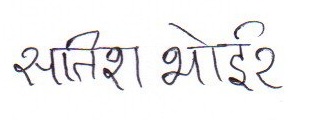 सतिश भोईर